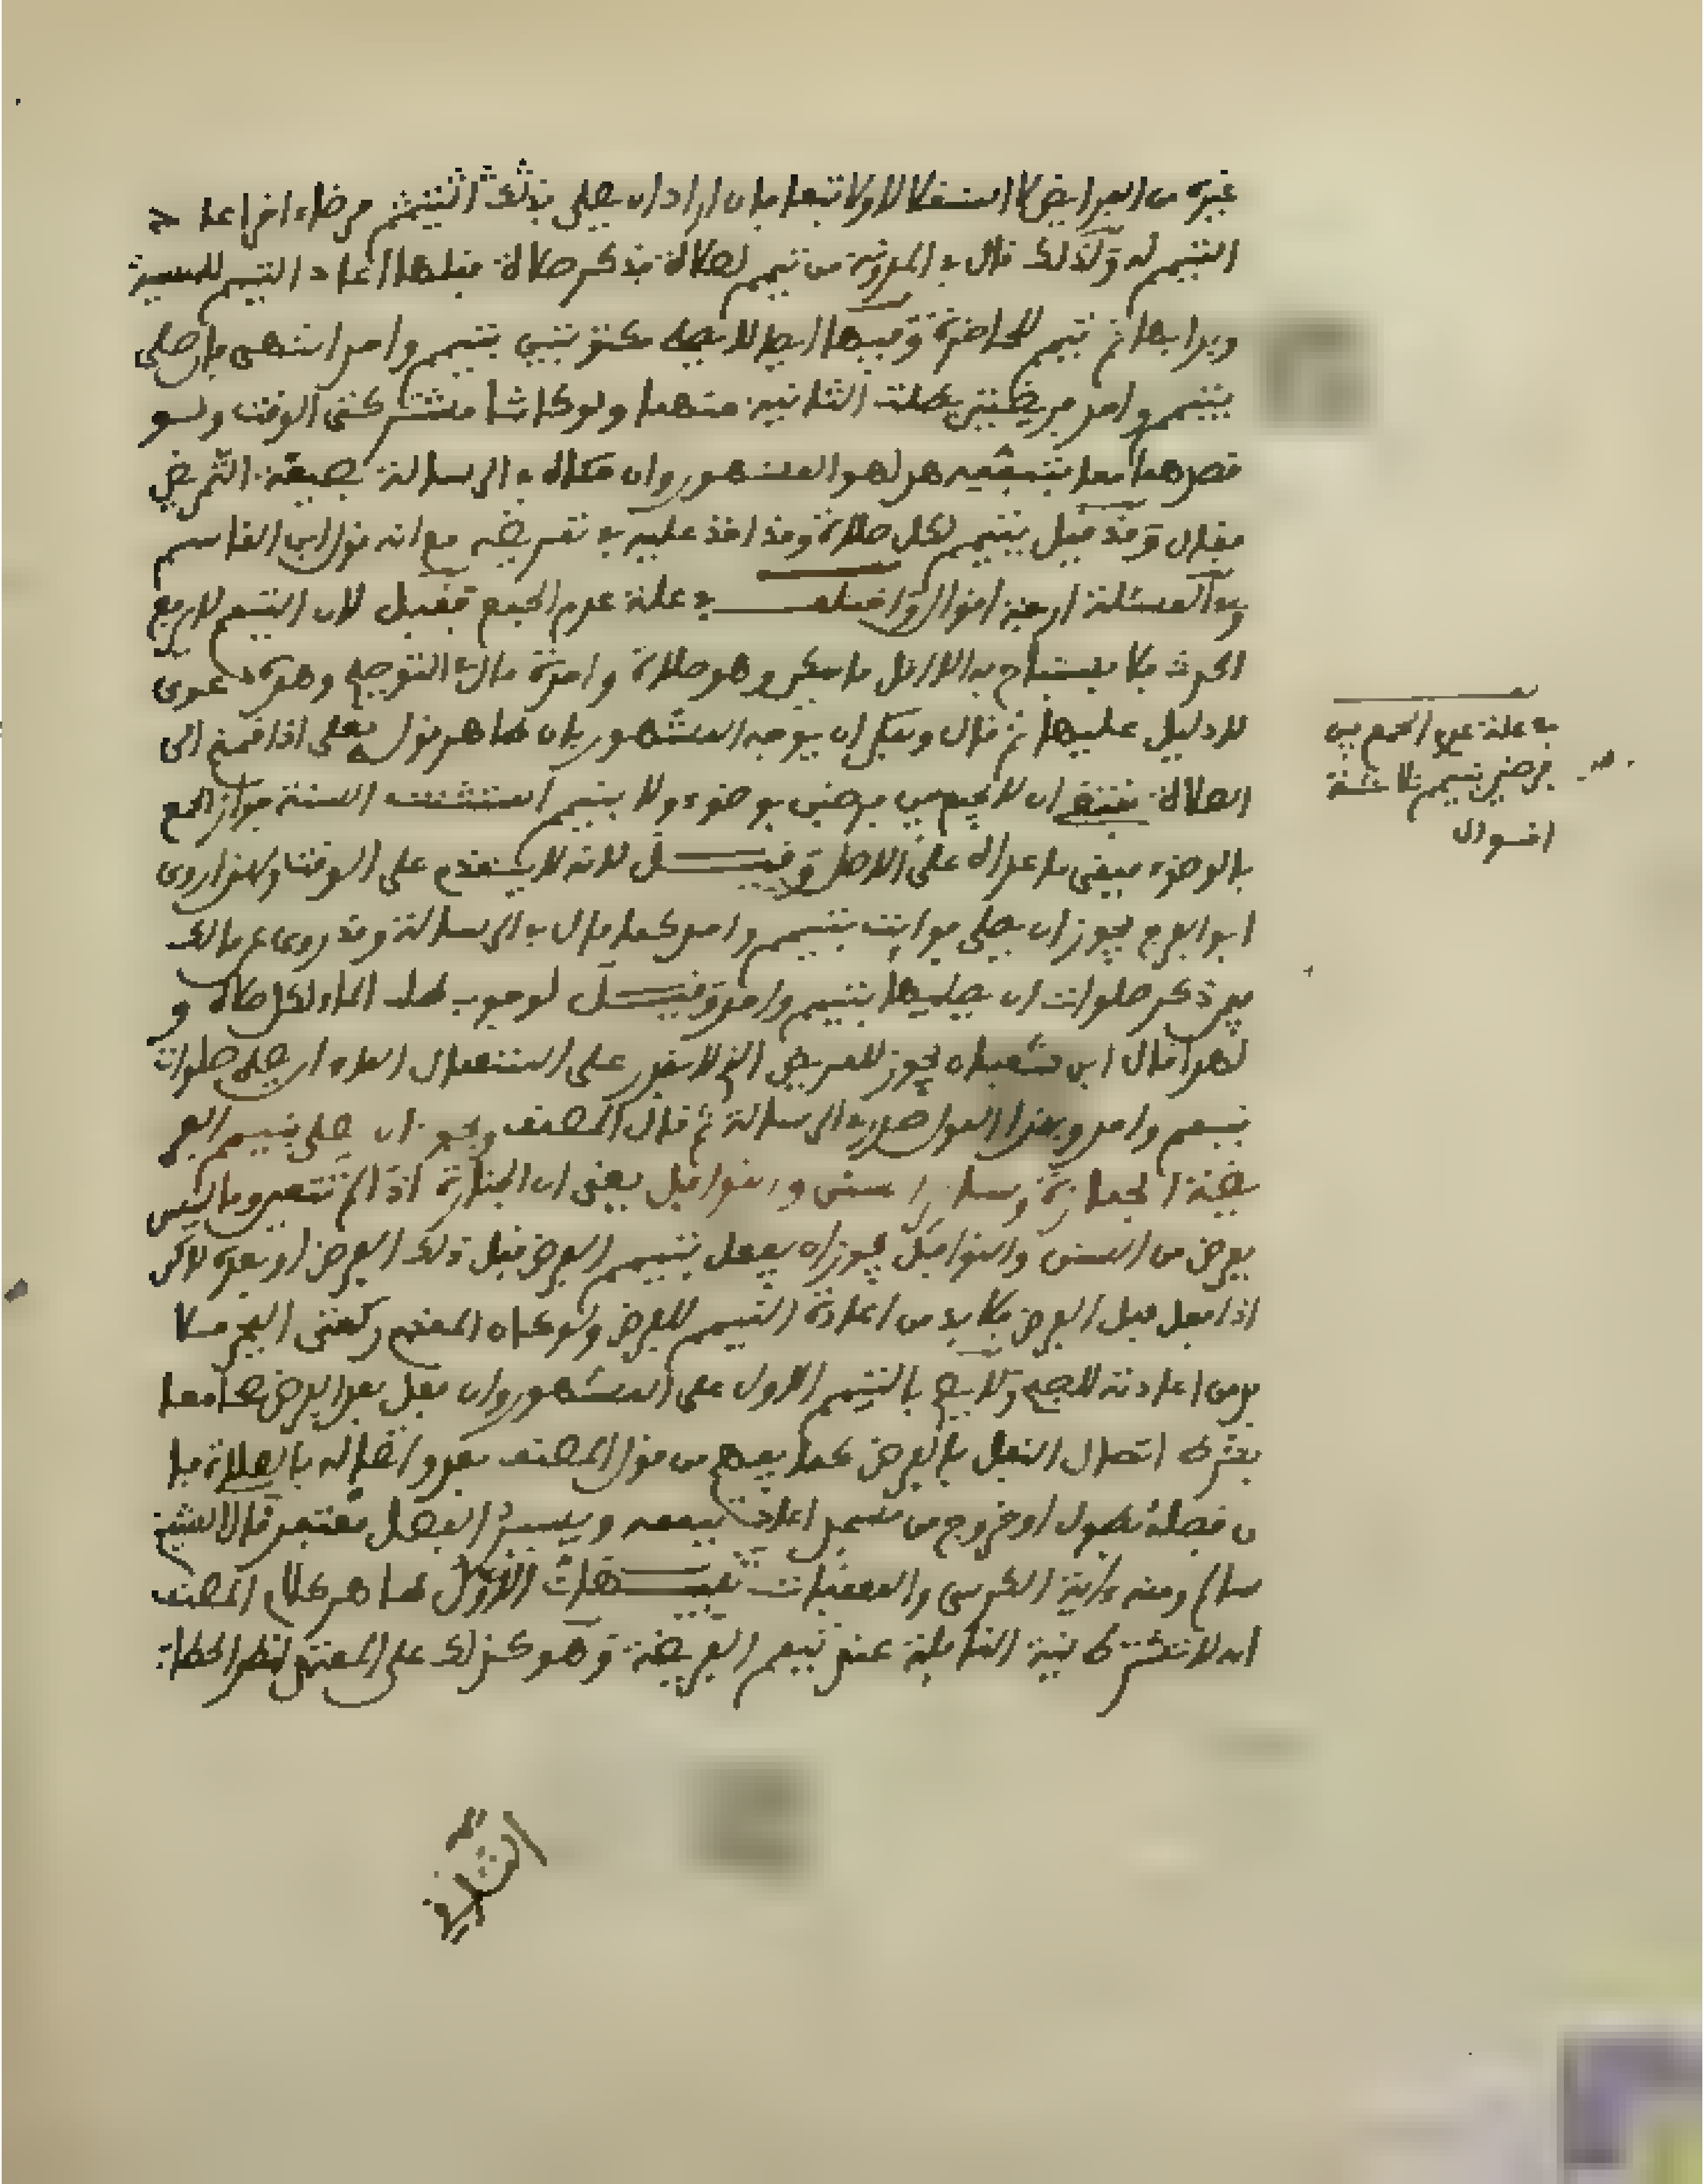 غيره من الفرايض لا استقلالا ولا تبعا فان اراد ان يصلي بذلك التيمم فرضا اخر اعاد
التيمم له وكذلك قال في المدونة من تيمم لصلاة فذكر صلاة قبلها اعاد التيمم للمنسية
وبدا بها ثم تيمم للحاضرة وفيها ايضا لا يصلي مكتوبتين بتيمم واحد انتهى فان صلى
بتيمم واحد فريضتين بطلت الثانية منهما ولو كانتا مشتركتي الوقت ولو
قصدهما معا بتيممه هذا هو المشهور وان حكاه في الرسالة بصيغة التمريض
فقال وقد قيل يتيمم لكل صلاة وقد اخذ عليه في تمريضه مع انه قول ابن القاسم
وفي المسئلة اربعة اقوال واختلف في علة عدم الجمع فقيل لان التيمم لا يرفع
الحدث فلا يستباح به الا اقل ما يمكن وهو صلاة واحدة قال في التوضيح وهذه دعوى
لا دليل عليها ثم قال ويمكن ان يوجه المشهور بان ظاهر قوله تعلى اذا قمتم الى
الصلاة يقتضي ان لا يجمع بين فرضين بوضوء ولا بتيمم استثنت السنة جواز الجمع
بالوضوء فيبقى ما عداه على الاصل وقيل لانه لا يتقدم على الوقت ولهذا روى
ابو الفرج يجوز ان يصلي فوايت بتيمم واحد كما قال في الرسالة وقد روي عن مالك
فيمن ذكر صلوات ان يصليها بتيمم واحد وقيل لوجوب طلب الماء لكل صلاة و
لهذا قال ابن شعبان يجوز للمريض الذي لا يقدر على استعمال الماء ان يصلي صلوات
بتيمم واحد وبهذا القول صدر في الرسالة ثم قال المصنف ويجوز ان يصلي بتيمم الفر
يضة الجنازة وساير السنن والنوافل يعني ان الجنازة اذا لم تتعين وما ليس
بفرض من السنن والنوافل يجوز ان يفعل بتيمم الفرض قبل ذلك الفرض او بعده لاكن
اذا فعل قبل الفرض فلا بد من اعادة التيمم للفرض ولو كان المقدم ركعتي الفجر فلا
بد من اعادته للصبح ولا يصح بالتيمم الاول على المشهور وان فعل بعد الفرض صحا معا
بشرط اتصال النفل بالفرض كما يفهم من قول المصنف بعد واتصاله بالصلاة فا
ن فصله بطول او خروج من مسجد اعاد تيممه ويسير الفصل مغتفر قال الشيخ
سالم ومنه ءاية الكرسي والمعقبات تنبيهات الاول ظاهر كلام المصنف
انه لا تشترط نية النافلة عند تيمم الفريضة وهو كذلك على المعتمد انظر الحطاب
في علة عدم الجمع بين
فرضين بتيمم ثلاثة
اقوال